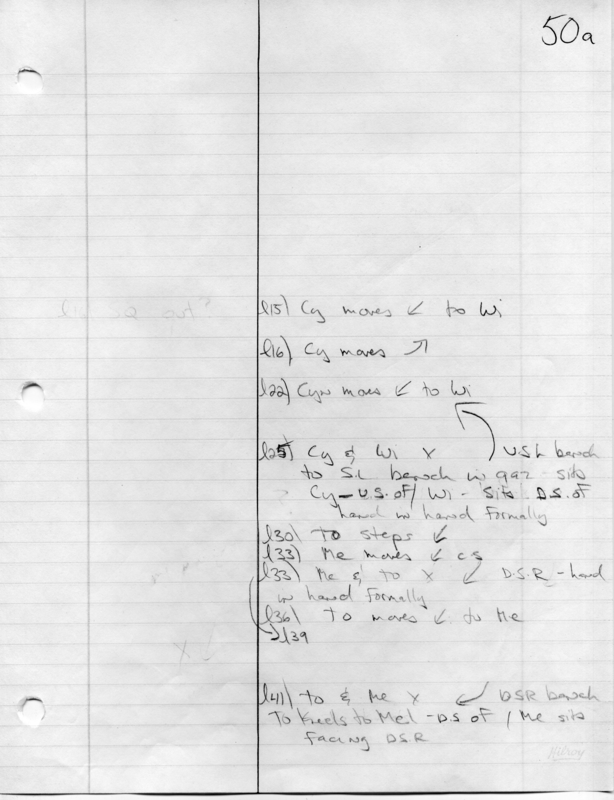 50a
l15) Cy moves ↙ to Wi
l16) Cy moves ↗
l22) Cyn moves ↙ to Wi
l25) Cy & Wi X U.S.L bench
to S.L bench in gaz - sits
Cy - U.S. of / Wi - sits D.S. of
hand in hand formally
l30) To steps ↙
l33) Me moves ↙ cs
l33) Me & to X ↙ D.S.R - hand
in hand formally
l36) To moves ↙ to Me
l39
l41) to & Me X ↙ DSR bench
To Kneels to Mel - D.S of / Me sits
facing D.S.R
Hilroy